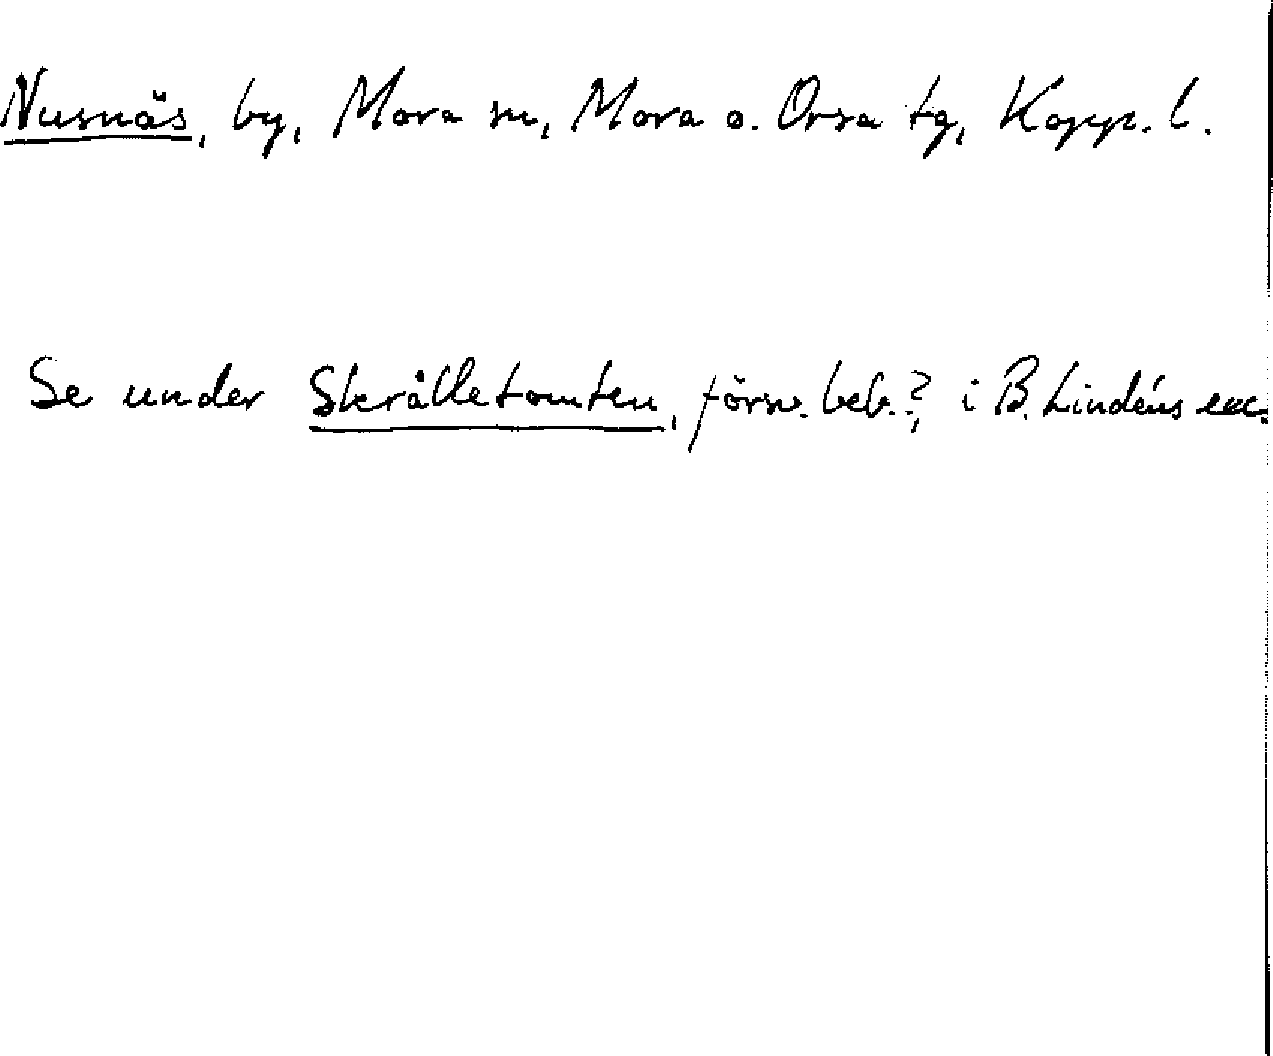 Nusnäs, by, Mora sn, Mora o. Orsa tg, Kopp. l.
Se under Skrålletomten, försv. beb.?, i B. Lindéns exc.